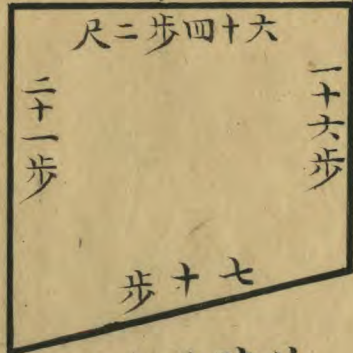 六十四步二尺
一十六步
二十一步
七十步